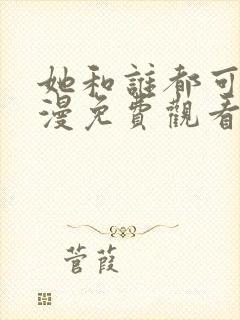 她和誰都可
漫免費觀看
菅葭